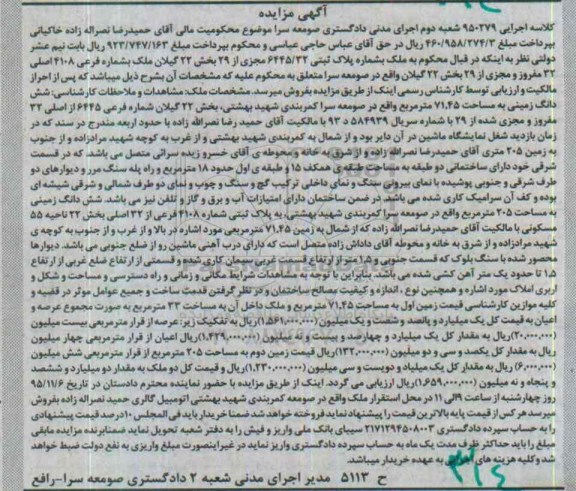 آگهی مزایده
کلاسه اجرایی ۹۵۰۲۷۹ شعبه دوم اجرای مدنی دادگستری صومعه سرا موضوع محکومیت مالی آقای حمیدرضا نصراله زاده خاکیانی
بپرداخت مبلغ ۴۶۰/۹۵۸/۲۷۴/۳ ریال در حق آقای عباس حاجی عباسی و محکوم بپرداخت مبلغ ۹۲۳/۷۴۷/۱۶۳ ریال بابت نیم عشر
دولتی نظر به اینکه در قبال محکوم به ملک بشماره پلاک ثبتی ۶۴۴۵/۳۲ مجزی از ۲۹ بخش ۲۲ گیلان ملک بشماره فرعی ۴۱۰۸ اصلی
۳۲ مفروز و مجزی از ۲۹ بخش ۲۲ گیلان واقع در صومعه سرا متعلق به محکوم علیه که مشخصات آن بشرح ذیل میباشد که پس از احراز
مالکیت و ارزیابی توسط کارشناس رسمی اینک از طریق مزایده بفروش میرسد. مشخصات ملک: مشاهدات و ملاحظات کارشناسی: شش
دانگ زمینی به مساحت ۷۱.۴۵ مترمربع واقع در صومعه سرا کمربندی شهید بهشتی، بخش ۲۲ گیلان شماره فرعی ۶۴۴۵ از اصلی ۳۲
مفروز و مجزی شده از ۲۹ با شماره سریال ۵۸۴۹۳۹ د ۹۳ با مالکیت آقای حمید رضا نصراله زاده با حدود اربعه مندرج در سند که در
زمان بازدید شغل نمایشگاه ماشین در آن دایر بود و از شمال به کمربندی شهید بهشتی و از غرب به کوچه شهید مرادزاده و از جنوب
به زمین ۲۰۵ متری آقای حمیدرضا نصراله زاده و از شرق به خانه و محوطه ی آقای خسرو زیده سرائی متصل می باشد. که در قسمت
شرقی خود دارای ساختمانی دو طبقه به مساحت طبقه ی همکف ۱۵ و طبقه ی اول حدود ۱۸ مترمربع و راه پله سنگ مرر و دیوارهای دو
طرف شرقی و جنوبی پوشیده با نمای بیرونی سنگ و نمای داخلی ترکیب گچ و سنگ و چوب و نمای دو طرف شمالی و شرقی شیشه ای
بوده و کف آن سرامیک کاری شده می باشد در ضمن ساختمان دارای امتیازات آب و برق و گاز و تلفن نیز می باشد. شش دانگ زمینی
به مساحت ۲۰۵ مترمربع واقع در صومعه سرا کمربندی شهید بهشتی، به پلاک ثبتی شماره ۴۱۰۸ فرعی از ۳۲ اصلی بخش ۲۲ ناحیه ۵۵
مسکونی با مالکیت آقای حمیدرضا نصراله زاده که از شمال به زمین ۷۱.۴۵ مترمربعی مورد اشاره در بالا و از غرب و از جنوب به کوچه ی
شهید مرادزاده و از شرق به خانه و محوطه آقای داداش زاده متصل است که دارای درب آهنی ماشین رو از ضلع جنوبی می باشد. دیوارها
محصور شده با سنگ بلوک که قسمت جنوبی و ۱.۵ متر از ارتفاع قسمت غربی سیمان کاری شده و قسمتی از ارتفاع ضلع غربی از ارتفاع
۱.۵ تا حدود یک متر آهن کشی شده می باشد. بنابراین با توجه به مشاهدات شرایط مکانی و زمانی و راه دسترسی و مساحت و شکل و
اربری املاک مورد اشاره و همچنین نوع ، اندازه و کیفیت مصالح ساختمان و در نظر گرفتن قدمت ساخت و جمیع عوامل موثر در قضیه و
کلیه موازین کارشناسی قیمت زمین اول به مساحت ۷۱.۴۵ مترمربع و ملک داخل آن به مساحت ۳۳ مترمربع به صورت مجموع عرصه و
اعیان به قیمت کل یک میلیارد و پانصد و شصت و یک میلیون (۱,۵۶۱,۰۰۰,۰۰۰)ریال به تفکیک زیر: عرصه از قرار مترمربعی بیست میلیون
(۲۰,۰۰۰,۰۰۰)ریال به مقدار کل یک میلیارد و چهارصد و بیست و نه میلیون (۱,۴۲۹,۰۰۰,۰۰۰)ریال اعیان از قرار مترمربعی چهار میلیون
ریال به مقدار کل یکصد و سی و دو میلیون (۱۳۲,۰۰۰,۰۰۰)ریال قیمت زمین دوم به مساحت ۲۰۵ مترمربع از قرار مترمربعی شش میلیون
(۶,۰۰۰,۰۰۰) ریال به مقدار کل یک میلیاد و دویست و سی میلیون (۱,۲۳۰,۰۰۰,۰۰۰)ریال و قیمت کل دو ملک به مقدار دو میلیارد و ششصد
و پنجاه و نه میلیون (۱,۶۵۹,۰۰۰,۰۰۰)ریال ارزیابی می گردد. اینک از طریق مزایده با حضور نماینده محترم دادستان در تاریخ ۹۵/۱۱/۶
روز چهارشنبه از ساعت ۹الی ۱۱ در محل استقرار ملک واقع در صومعه کمربندی شهید بهشتی اتومبیل گالری حمید نصراله زاده بفروش
میرسد هر کس از قیمت پایه بالاترین قیمت را پیشنهاد نماید فروخته خواهد شد ضمنا خریدار باید فی المجلس ۱۰درصد قیمت پیشنهادی
را به حساب سپرده دادگستری ۲۱۷۱۲۹۴۵۰۸۰۰۳ سیبای بانک ملی واریز و فیش را به دفتر شعبه تحویل نماید ضمنابرنده مزایده مابقی
مبلغ را باید حداکثر ظرف مدت یک ماه به حساب سپرده دادگستری واریز نماید در غیراینصورت مبلغ واریزی به نفع دولت ضبط خواهد
شد وکلیه هزینه های به عهده خریدار میباشد.
ح ۵۱۱۳ مدیر اجرای مدنی شعبه ۲ دادگستری صومعه سرا-رافع